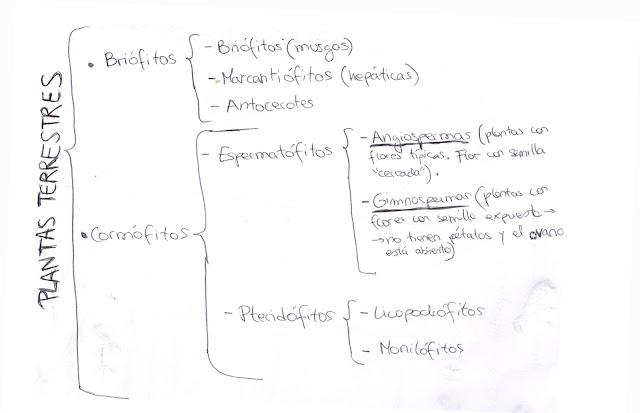 PLANTAS TERRESTRES
• Briófitos
- Briófitos (musgos)
- Marcantiófitos (hepáticas)
- Antocerotes
• Cormófitos
- Espermatófitos
- Angiospermas (plantas con
flores típicas. Flor con semilla
"cerrada").
- Gimnospermas (plantas con
flores con semilla expuesta →
→ no tienen pétalos y el ovario
está abierto)
- Pteridófitos
- Licopodiófitos
- Monilófitos